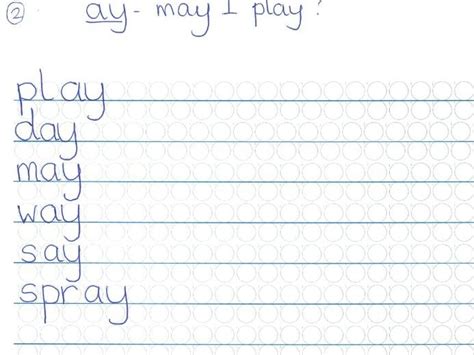 ② ay - may I play?
play
day
may
way
say
spray